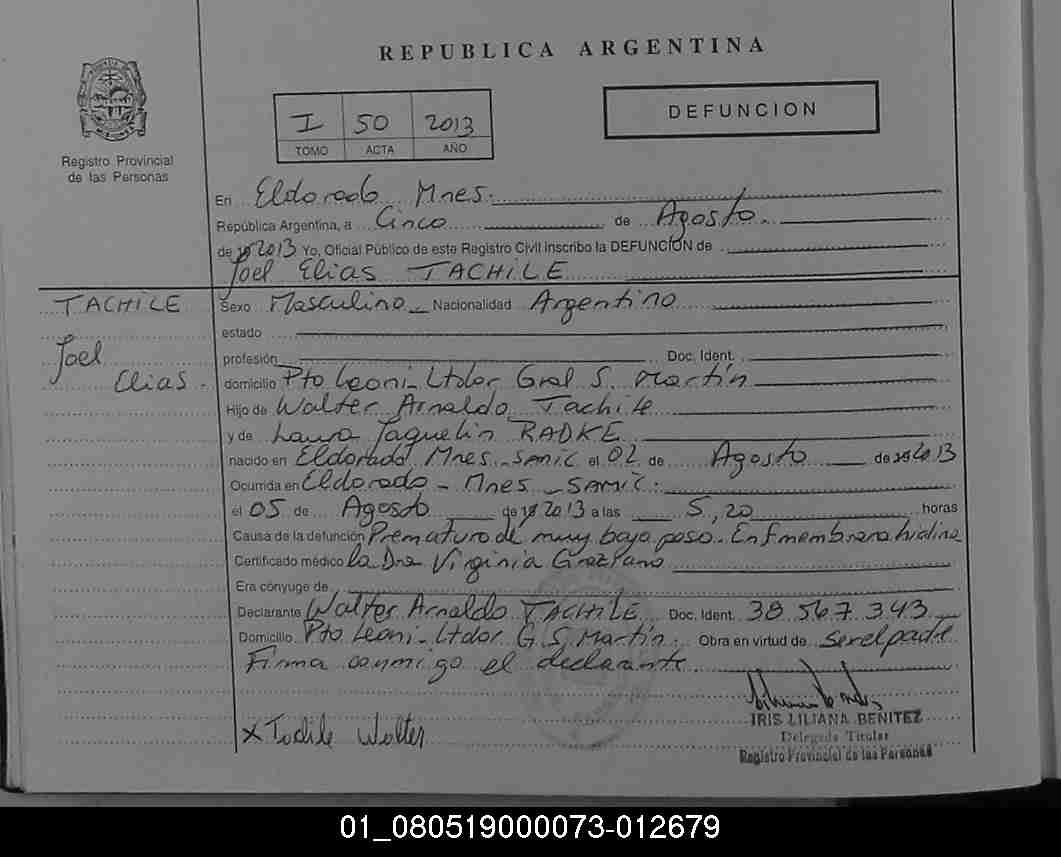 REPUBLICA ARGENTINA
DEFUNCION
I 50 2013
TOMO ACTA AÑO
Registro Provincial
de las Personas
En Eldorado Mnes.
República Argentina, a Cinco de Agosto
de 19 2013 Yo, Oficial Público de este Registro Civil inscribo la DEFUNCION de
Joel Elias TACHILE
TACHILE
Joel
Elias.
Sexo Masculino Nacionalidad Argentino
estado
profesión Doc. Ident.
domicilio Pto Leoni - Ltdor Gral S. Martín
Hijo de Walter Arnaldo Tachile
y de Laura Jaquelin RADKE
nacido en Eldorado Mnes - SAMIC el 02 de Agosto de 19 2013
Ocurrida en Eldorado - Mnes - SAMIC.
el 05 de Agosto de 19 2013 a las 5,20 horas
Causa de la defunción Prematuro de muy bajo peso - Enf membrana hialina
Certificado médico la Dra Virginia Graziano
Era cónyuge de
Declarante Walter Arnaldo TACHILE Doc. Ident. 38 567 343
Domicilio Pto Leoni - Ltdor G. S. Martín. Obra en virtud de ser el padre
Firma conmigo el declarante
x Tachile Walter
IRIS LILIANA BENITEZ
Delegada Titular
Registro Provincial de las Personas
01_080519000073-012679